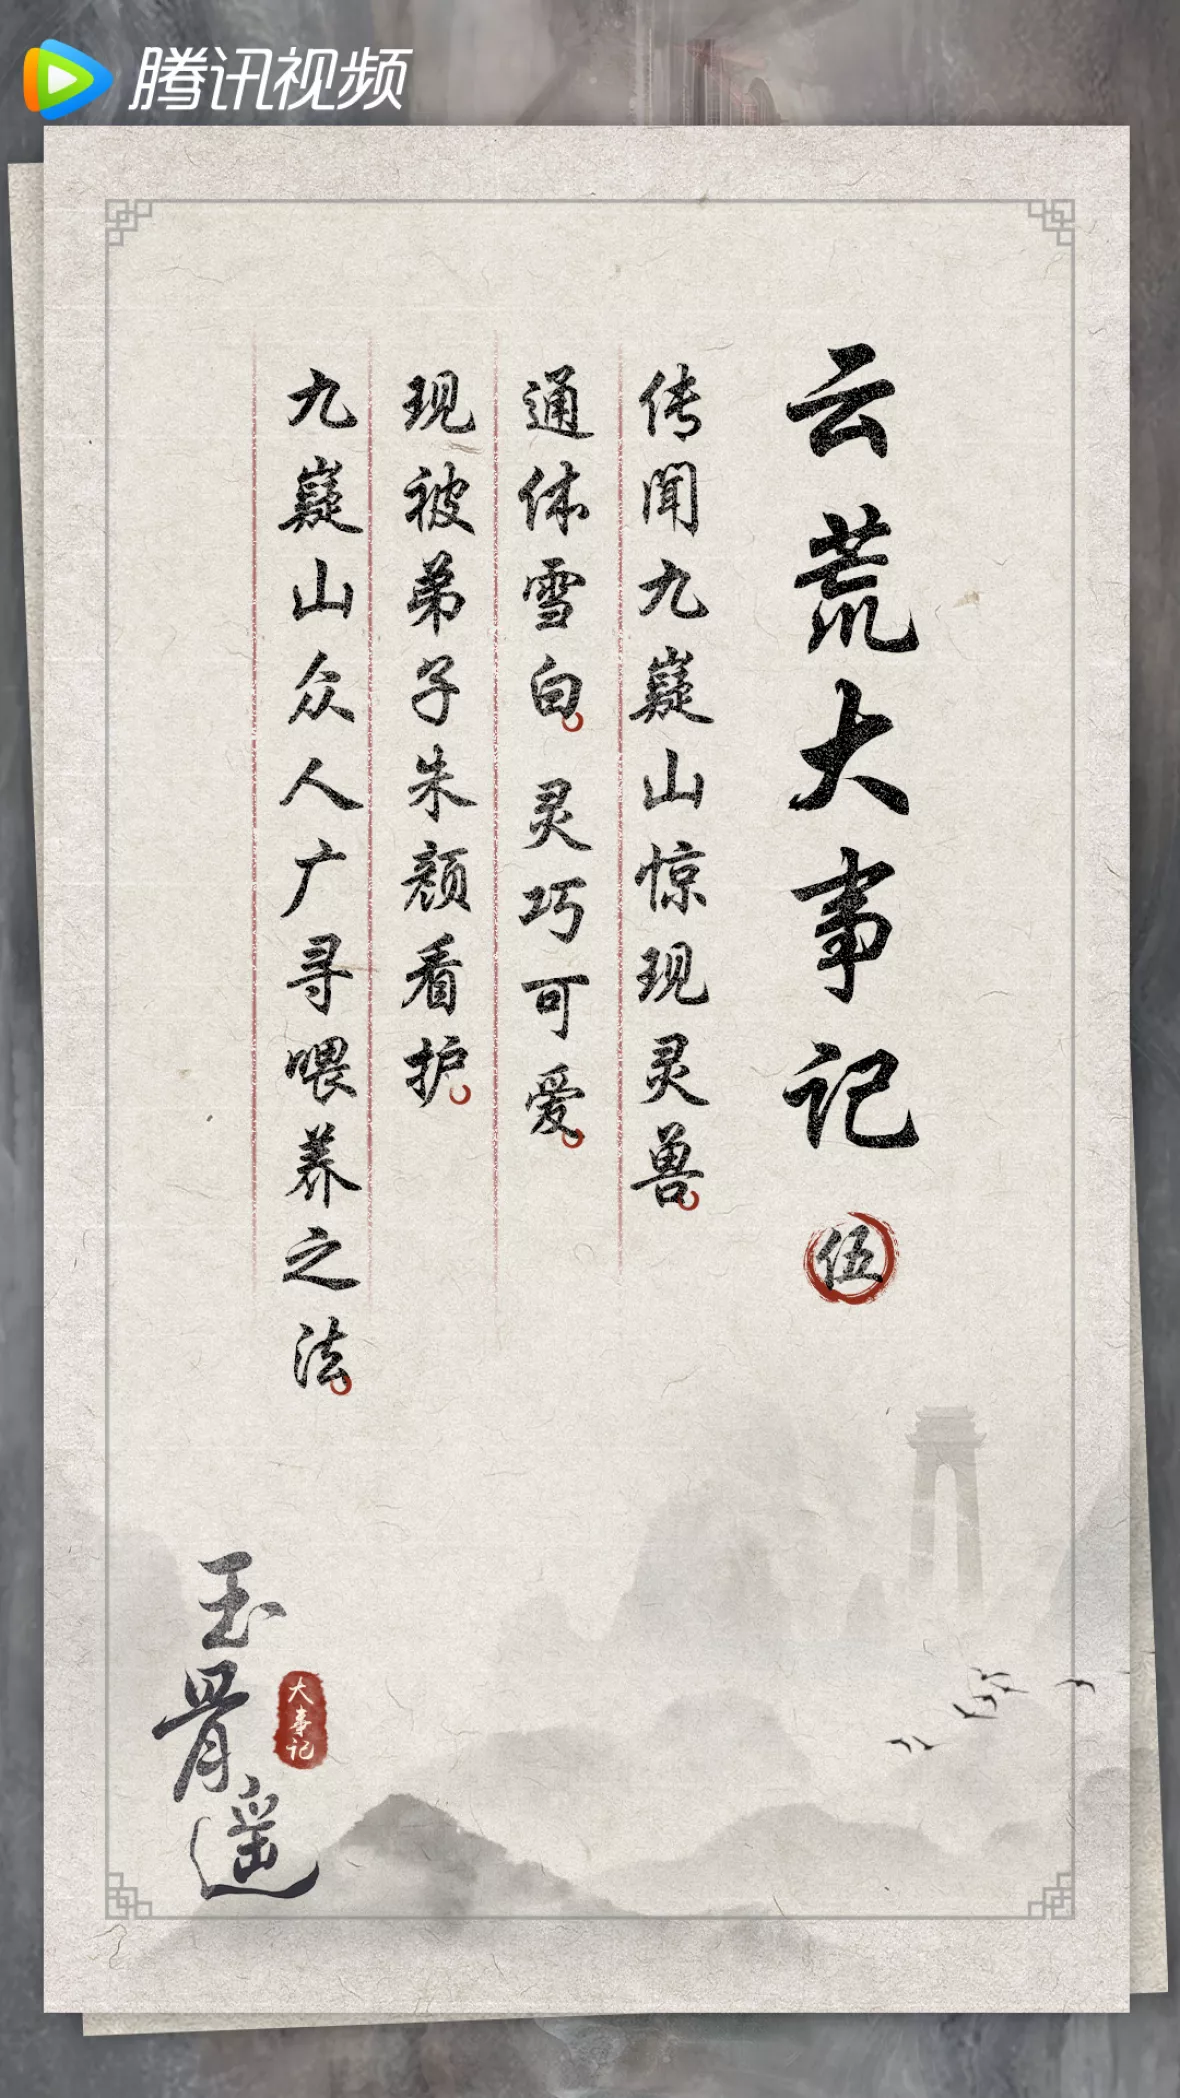 腾讯视频
云荒大事记
伍
传闻九嶷山惊现灵兽。
通体雪白。灵巧可爱。
现被弟子朱颜看护。
九嶷山众人广寻喂养之法。
玉骨遥
大事记